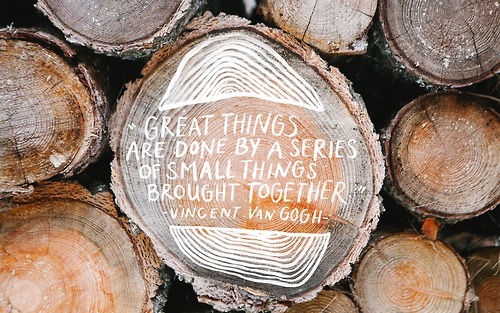 "GREAT THINGS
ARE DONE BY A SERIES
OF SMALL THINGS
BROUGHT TOGETHER"
-VINCENT VAN GOGH-